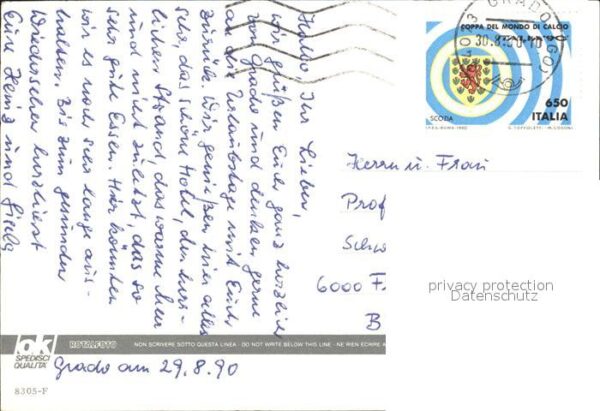 Hallo, Ihr Lieben,
wir grüßen Euch ganz herzlich
aus Grado und denken gerne
an die Urlaubstage mit Euch
zurück. Wir genießen hier alles
sehr, das schöne Hotel, den herr-
lichen Strand, das warme Meer
und nicht zuletzt, das so
sehr gute Essen. Hier könnten
wir es noch sehr lange aus-
halten. Bis zum gesunden
Wiedersehen herzlichst
Eure Heinz und
Grado am 29.8.90
COPPA DEL MONDO DI CALCIO
ITALIA '90
30.8.90
GRADO
SCOZIA
650
ITALIA
I.P.Z.S.-ROMA-1990
Herrn u. Frau
Prof
Schw
6000 F.
B
privacy protection
Datenschutz
ok
SPEDISCI
QUALITA'
ROTALFOTO
NON SCRIVERE SOTTO QUESTA LINEA - DO NOT WRITE BELOW THIS LINE - NE RIEN ECRIRE A
8305-F